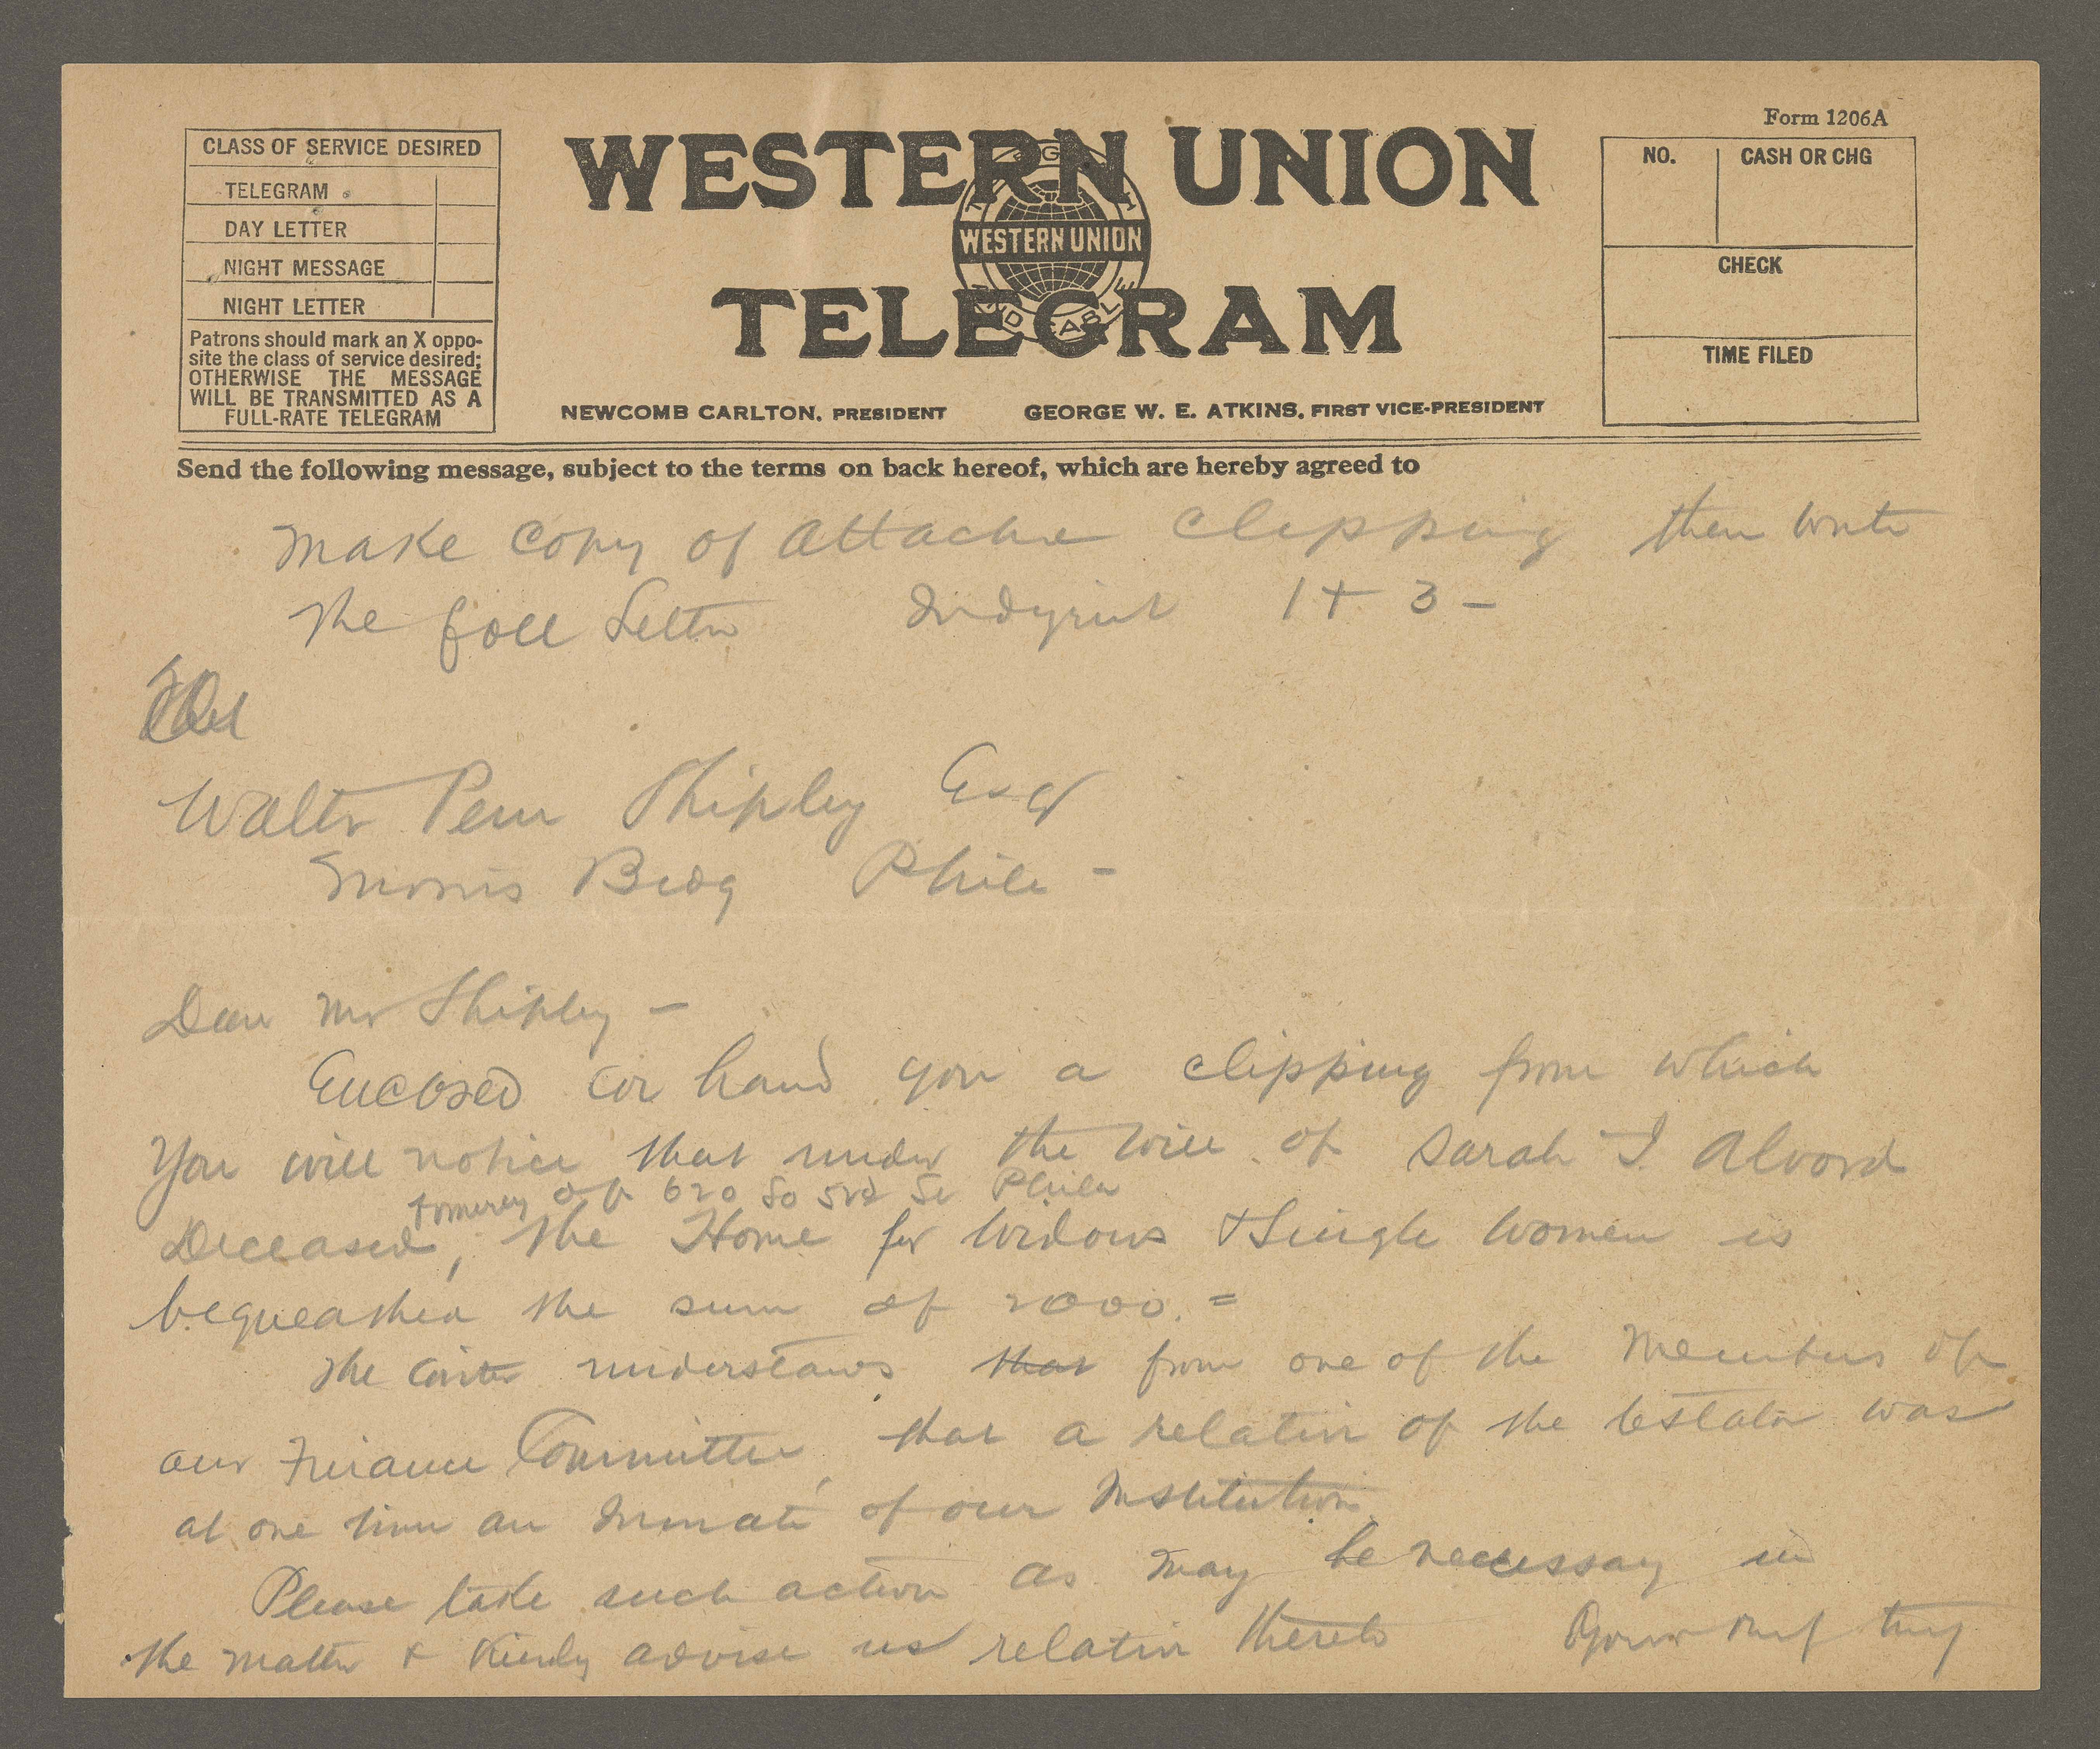 Form 1206A
CLASS OF SERVICE DESIRED
TELEGRAM
DAY LETTER
NIGHT MESSAGE
NIGHT LETTER
Patrons should mark an X oppo-
site the class of service desired;
OTHERWISE THE MESSAGE
WILL BE TRANSMITTED AS A
FULL-RATE TELEGRAM
WESTERN UNION
WESTERN UNION
TELEGRAM
NEWCOMB CARLTON, PRESIDENT GEORGE W. E. ATKINS, FIRST VICE-PRESIDENT
NO. CASH OR CHG
CHECK
TIME FILED
Send the following message, subject to the terms on back hereof, which are hereby agreed to
Make copy of attache clipping then write
the foll Letter 1 + 3 -
Walter Penn Shipley Esq
Morris Bldg Phila -
Dear Mr Shipley -
Enclosed we hand you a clipping from which
You will notice that under the will of Sarah I. Alvord
formerly of 620 So 3rd St Phila
Deceased, the Home for Widows & Single Women is
bequeathed the sum of 2000.=
The writer understands that from one of the Members of
our Finance Committee, that a relative of the testator was
at one time an Inmate of our Institution.
Please take such action as may be necessary in
the matter & Kindly advise us relative thereto Yours very truly